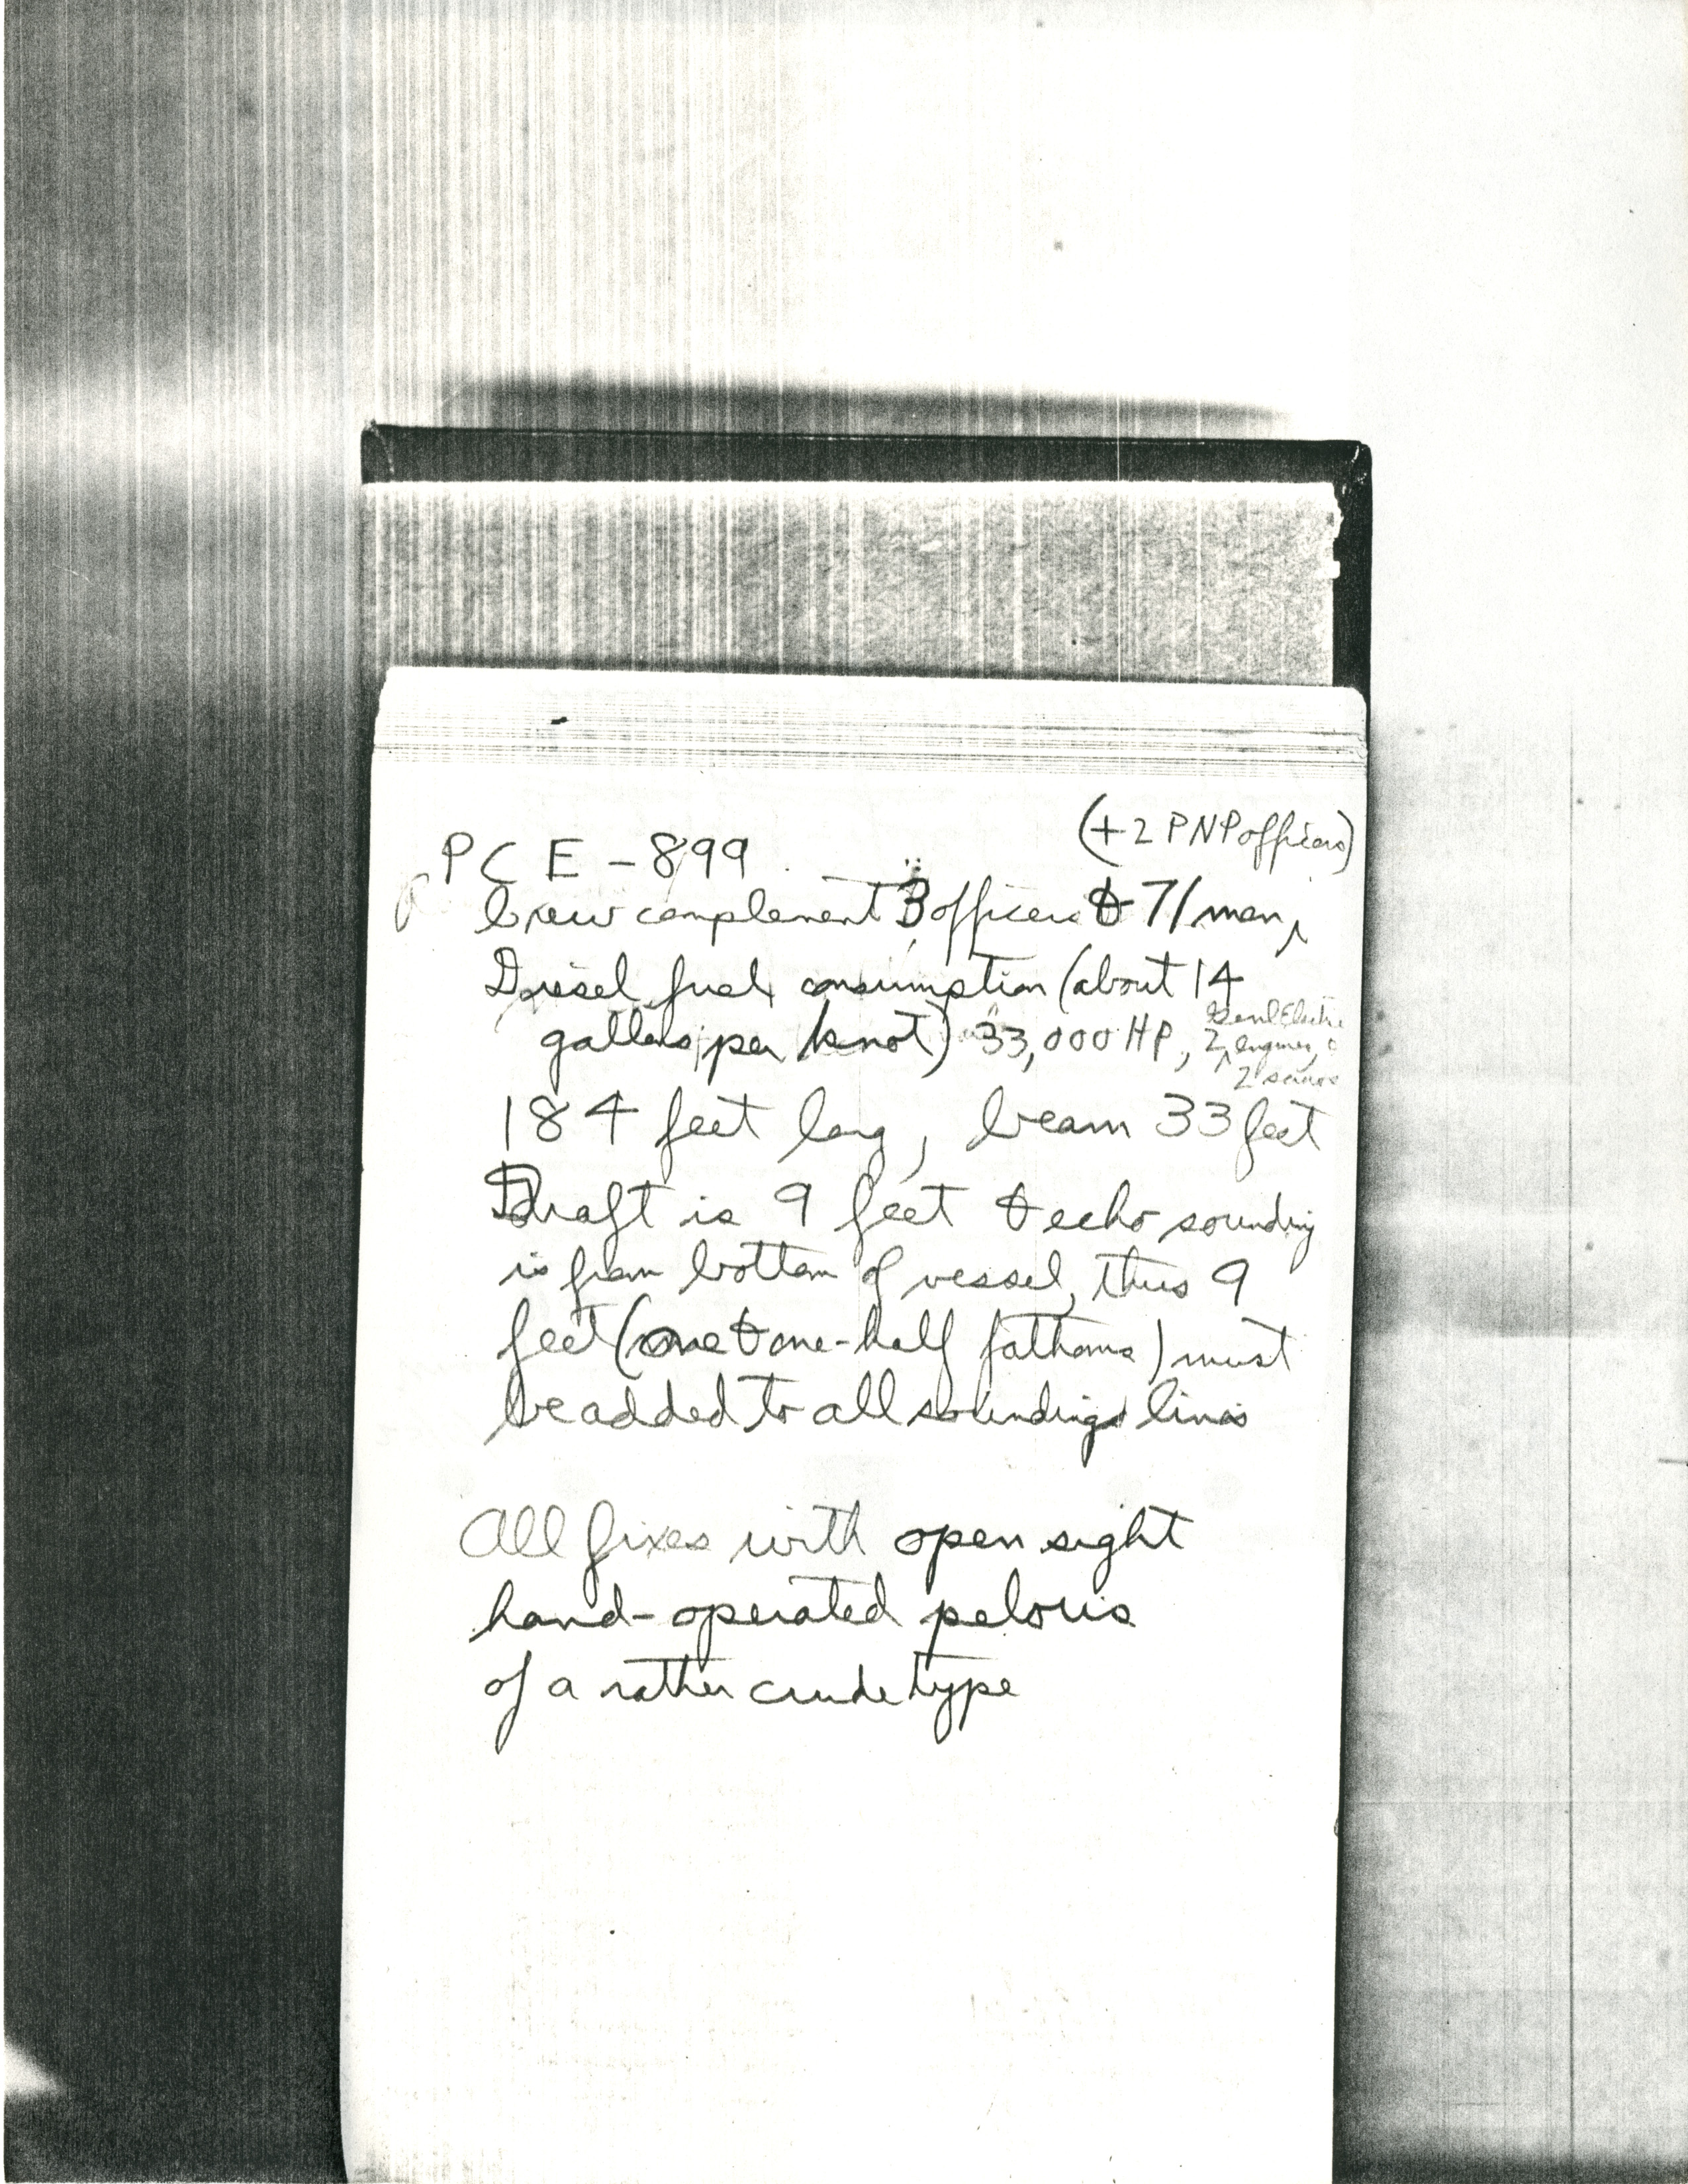 (+2 PNP officers)
PCE-899
Crew complement 3 officers & 71 men,
Diesel fuel consumption (about 14
gallons per knot) 33,000 HP, 2 engines,
184 feet long, beam 33 feet
Draft is 9 feet & echo sounding
is from bottom of vessel, thus 9
feet (one & one-half fathoms) must
be added to all soundings lines
All fixes with open sight
hand-operated peloris
of a rather crude type